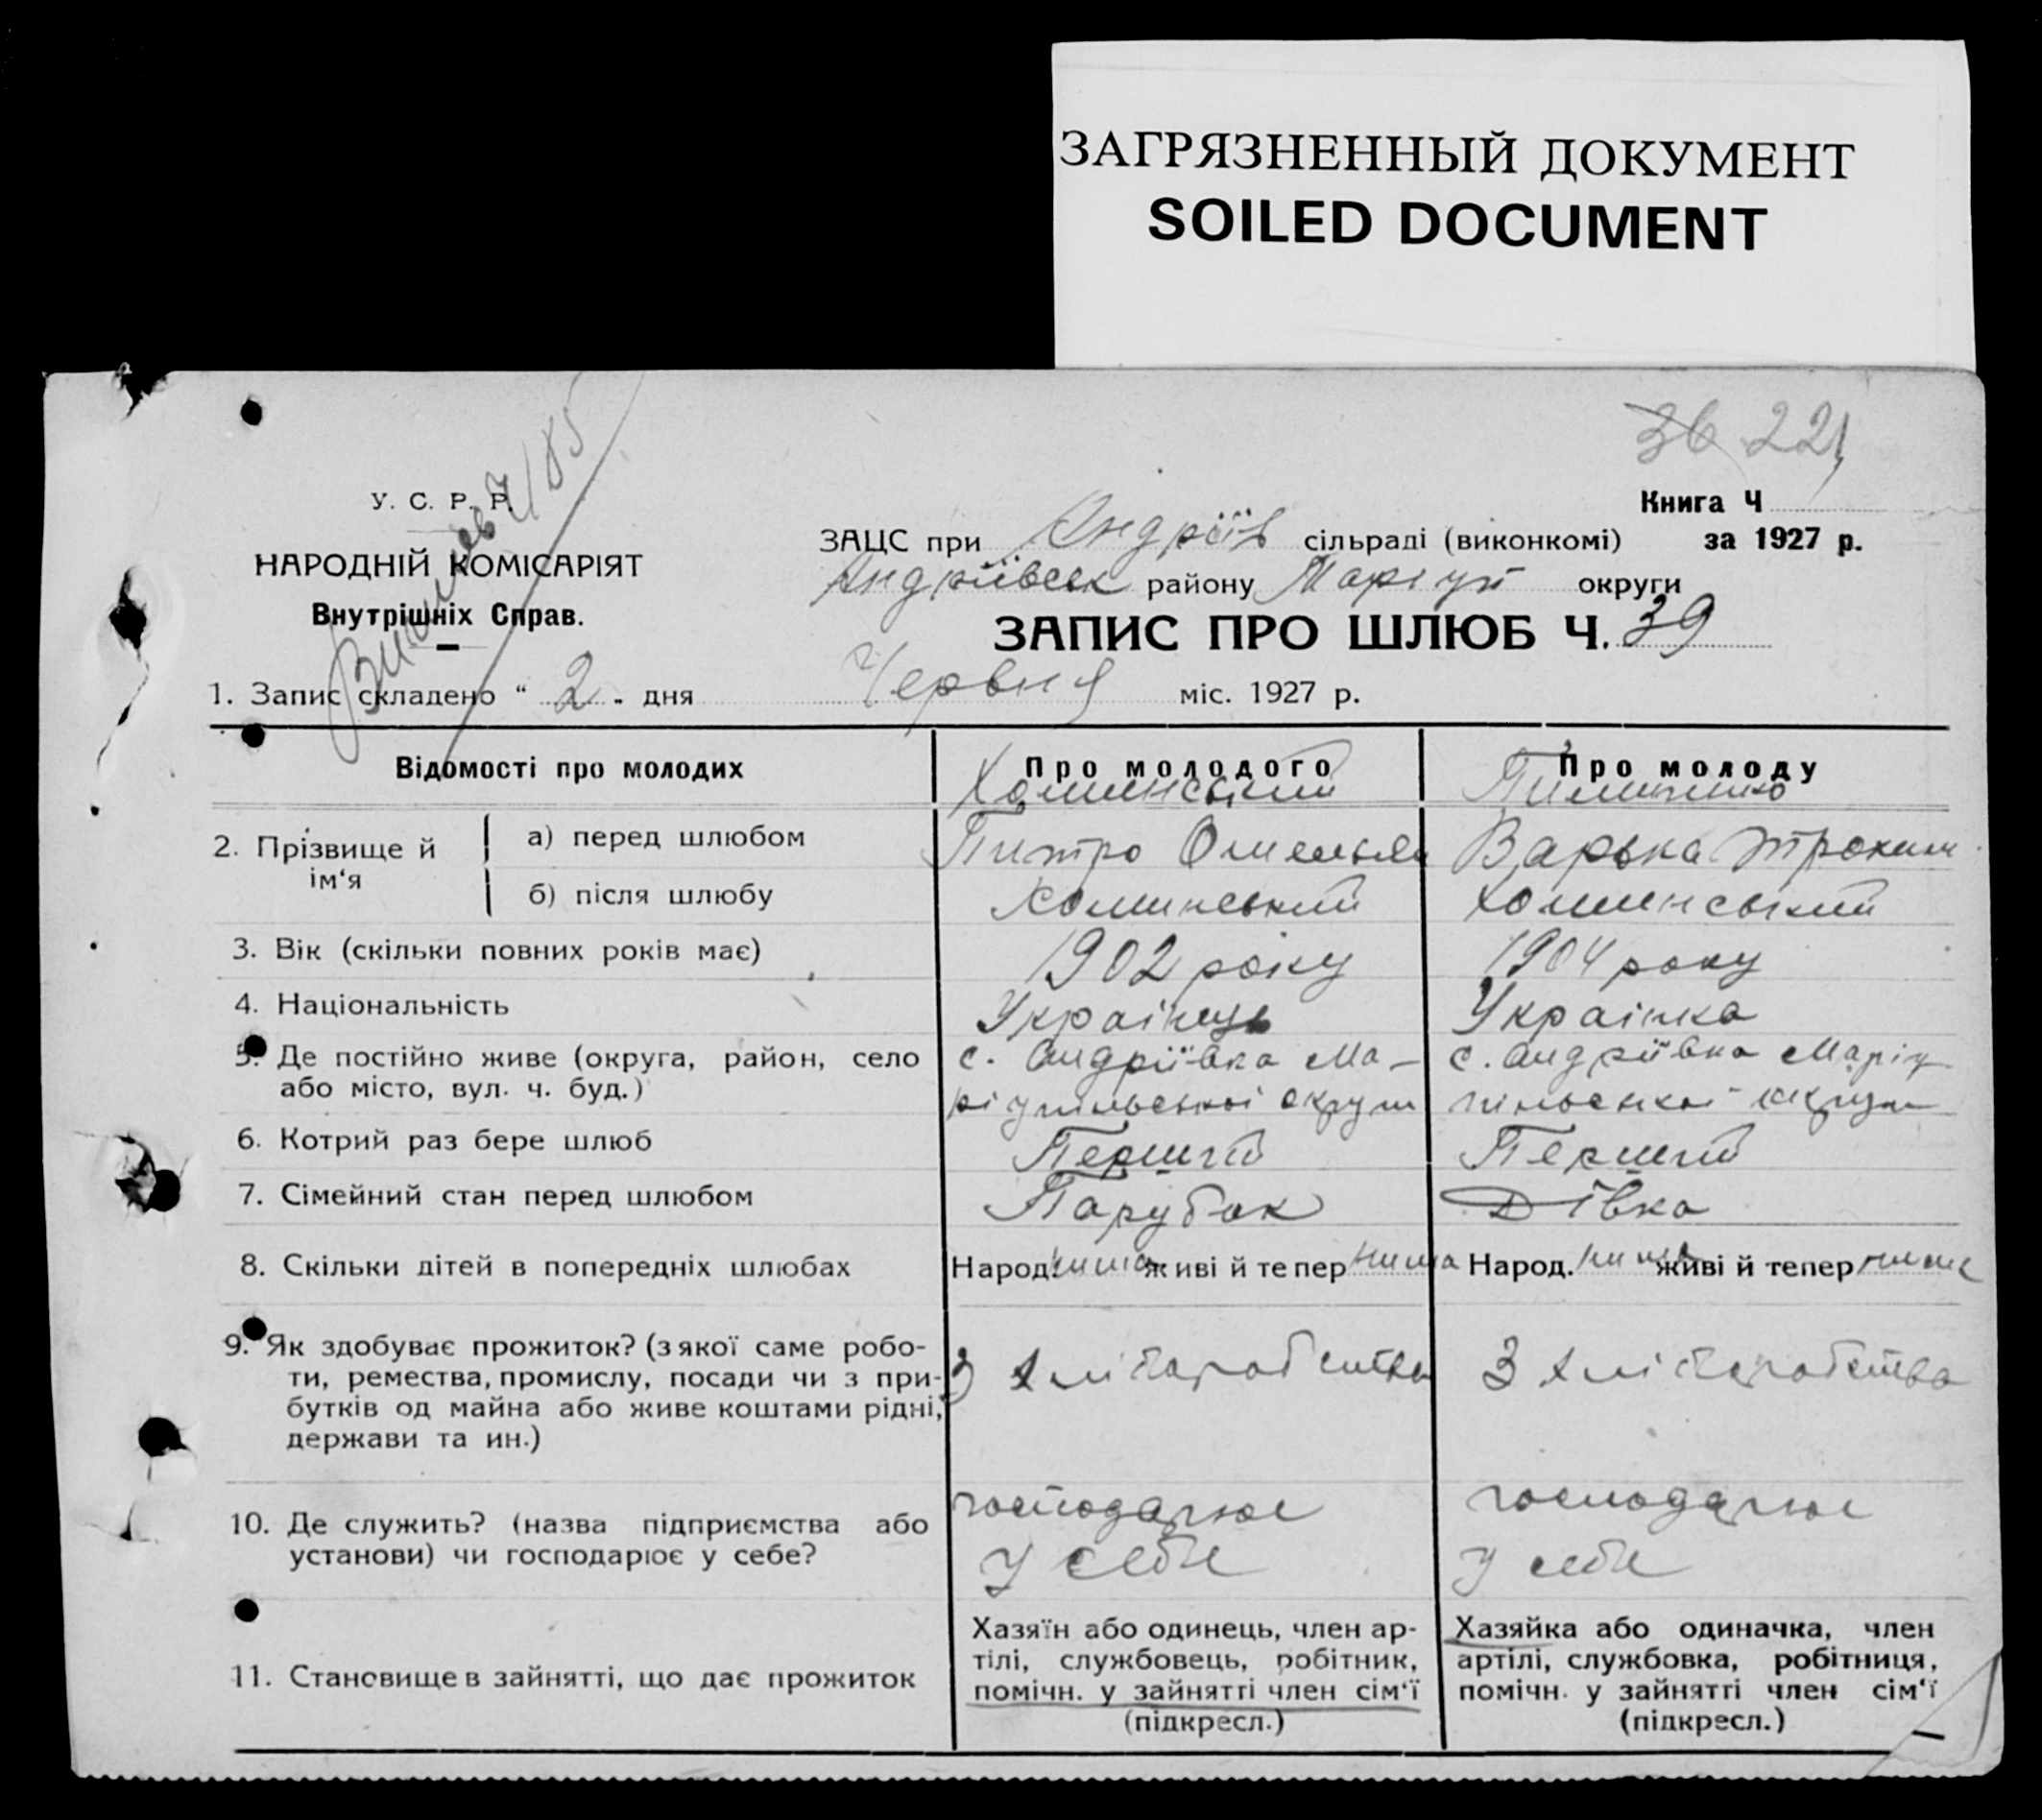 ЗАГРЯЗНЕННЫЙ ДОКУМЕНТ
SOILED DOCUMENT
36 221
У. С. Р. Р.
НАРОДНІЙ КОМІСАРІЯТ
Внутрішніх Справ.
Книга Ч
за 1927 р.
ЗАЦС при Андріїв сільраді (виконкомі)
Андріївськ району Маріуп округи
ЗАПИС ПРО ШЛЮБ Ч. 39
1. Запис складено “ 2 „ дня Червня міс. 1927 р.
Відомості про молодих
Про молодого
Про молоду
2. Прізвище й ім‘я
а) перед шлюбом
Хоминський
Питро Омельян
Варька Трохим
б) після шлюбу
Хоминський
Хоминський
3. Вік (скільки повних років має)
1902 року
1904 року
4. Національність
Украінець
Украінка
5. Де постійно живе (округа, район, село
або місто, вул. ч. буд.)
с. Андріївка Ма-
ріупільськоі округи
с. Андріївка Маріу
пільськоі округи
6. Котрий раз бере шлюб
Перший
Перший
7. Сімейний стан перед шлюбом
Парубок
Дівка
8. Скільки дітей в попередніх шлюбах
Народ. нима живі й тепер нима
Народ. нима живі й тепер нима
9. Як здобуває прожиток? (з якої саме робо-
ти, ремества, промислу, посади чи з при-
бутків од майна або живе коштами рідні,
держави та ин.)
З хліборобства
З хліборобства
10. Де служить? (назва підприємства або
установи) чи господарює у себе?
господарює
у себе
господарює
у себе
11. Становище в зайнятті, що дає прожиток
Хазяїн або одинець, член ар-
тілі, службовець, робітник,
помічн. у зайнятті член сім‘ї
(підкресл.)
Хазяйка або одиначка, член
артілі, службовка, робітниця,
помічн. у зайнятті член сім‘ї
(підкресл.)